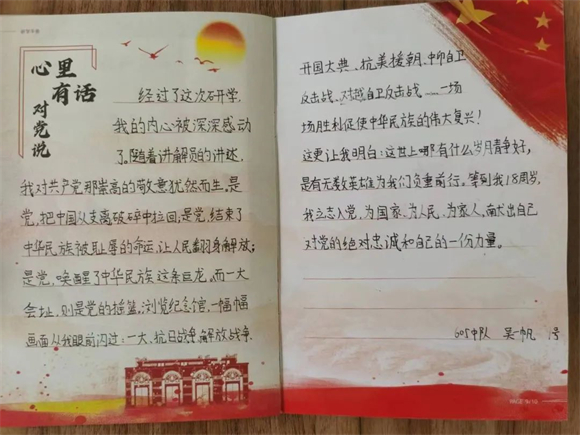 心里
有话
对党说
经过了这次研学,
我的内心被深深感动
了。随着讲解员的讲述,
我对共产党那崇高的敬意犹然而生。是
党,把中国从支离破碎中拉回,是党,结束了
中华民族被耻辱的命运,让人民翻身解放;
是党,唤醒了中华民族这条巨龙。而一大
会址,则是党的摇篮。浏览纪念馆,一幅幅
画面从我眼前闪过:一大、抗日战争、解放战争、
开国大典、抗美援朝、中印自卫
反击战、对越自卫反击战……一场
场胜利促使中华民族的伟大复兴!
这更让我明白:这世上哪有什么岁月静好,
是有无数英雄为我们负重前行。等到我18周岁,
我立志入党,为国家、为人民、为家人,献出自己
对党的绝对忠诚和自己的一份力量。
605中队 吴一帆 号